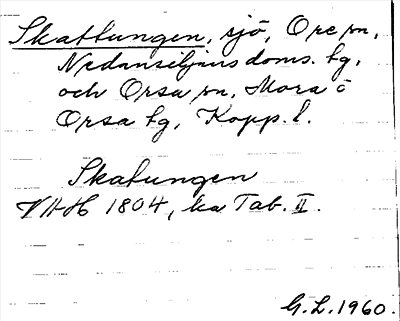 Skattungen, sjö, Ore sn,
Nedansiljans doms. tg,
och Orsa sn, Mora o
Orsa tg, Kopp. l.
Skatungen
VHH 1804, ka Tab. II.
G.L. 1960.